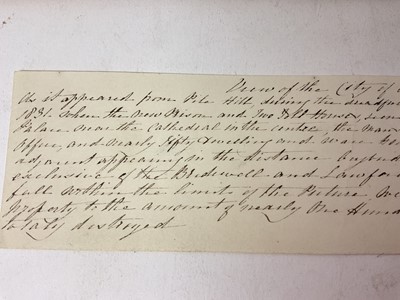 View of the City of
As it appeared from Pile Hill, during the dreadful
1831. when the New Prison and Two Toll Houses,
Palace near the Cathedral in the centre, the Man
Office, and nearly Fifty Dwelling and Ware
adjacent appearing in the distance
exclusive of the Bridewell and Lawford
fall within the limits of the Picture, We
Property to the amount of nearly One Hund
totally destroyed